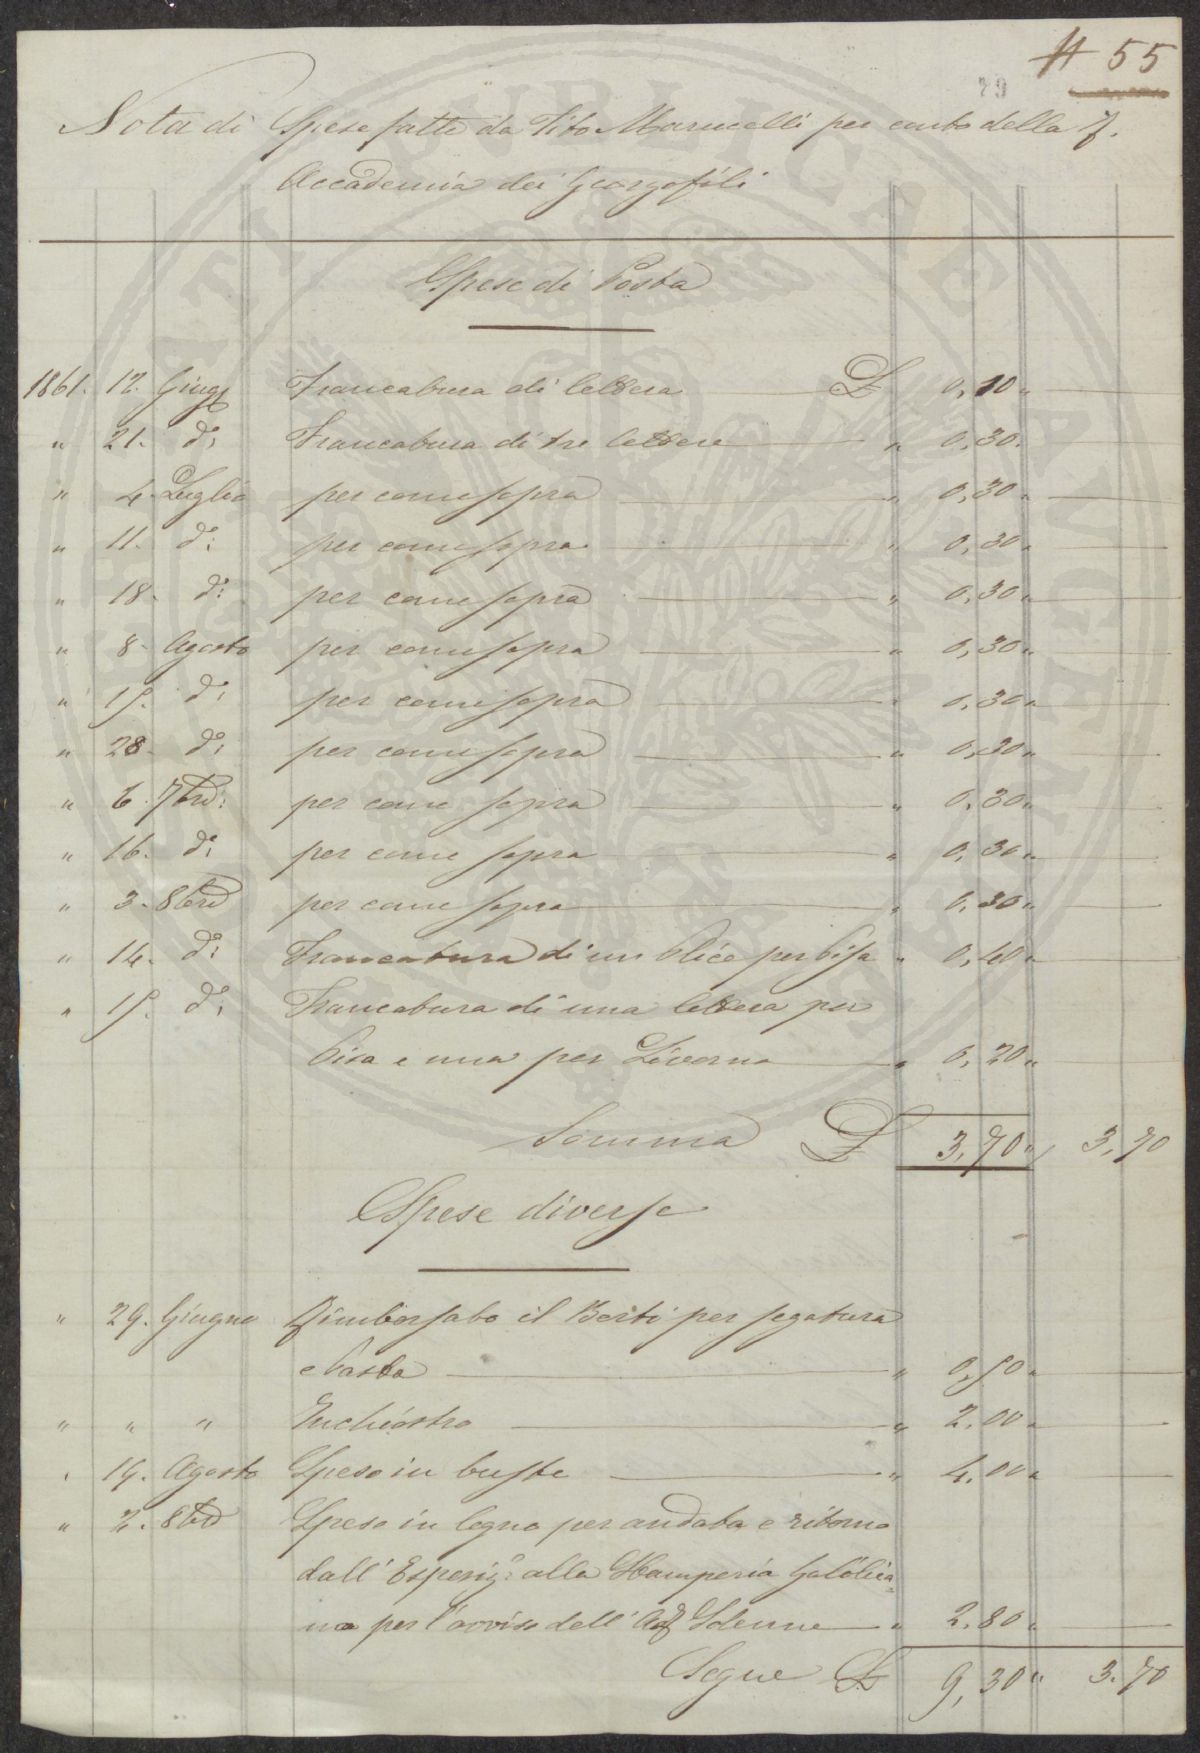 # 55
79
Nota di Spese fatte da Tito Marucelli per conto della R.
Accademia dei Georgofili
Spese di Posta
1861. 12. Giug. Francatura di lettera £ 0,10 "
" 21. do: Francatura di tre lettere " 0,30 "
" 4. Luglio per come sopra " 0,30 "
" 11. do: per come sopra " 0,30 "
" 18. do: per come sopra " 0,30 "
" 8. Agosto per come sopra " 0,30 "
" 15. do: per come sopra " 0,30 "
" 28. do: per come sopra " 0,30 "
" 6. 7bre: per come sopra " 0,30 "
" 16. do: per come sopra " 0,30 "
" 3. 8bre per come sopra " 0,30 "
" 14. do: Francatura di un Plico per Pisa " 0,40 "
" 15. do: Francatura di una lettera per
Pisa e una per Livorno " 0,20 "
Somma £ 3,70 " 3,70
Spese diverse
" 29. Giugno Rimborsato il Berti per segatura
e Pasta " 0,50 "
" " " Inchiostro " 2.00 "
" 19. Agosto Spese in buste " 4.00 "
" 2. 8bre Spese in legno per andata e ritorno
dall' Esposiz.e alla Stamperia Galileia=
na per l'avviso dell' Solenne " 2.80 "
Segue £ 9,30 " 3.70